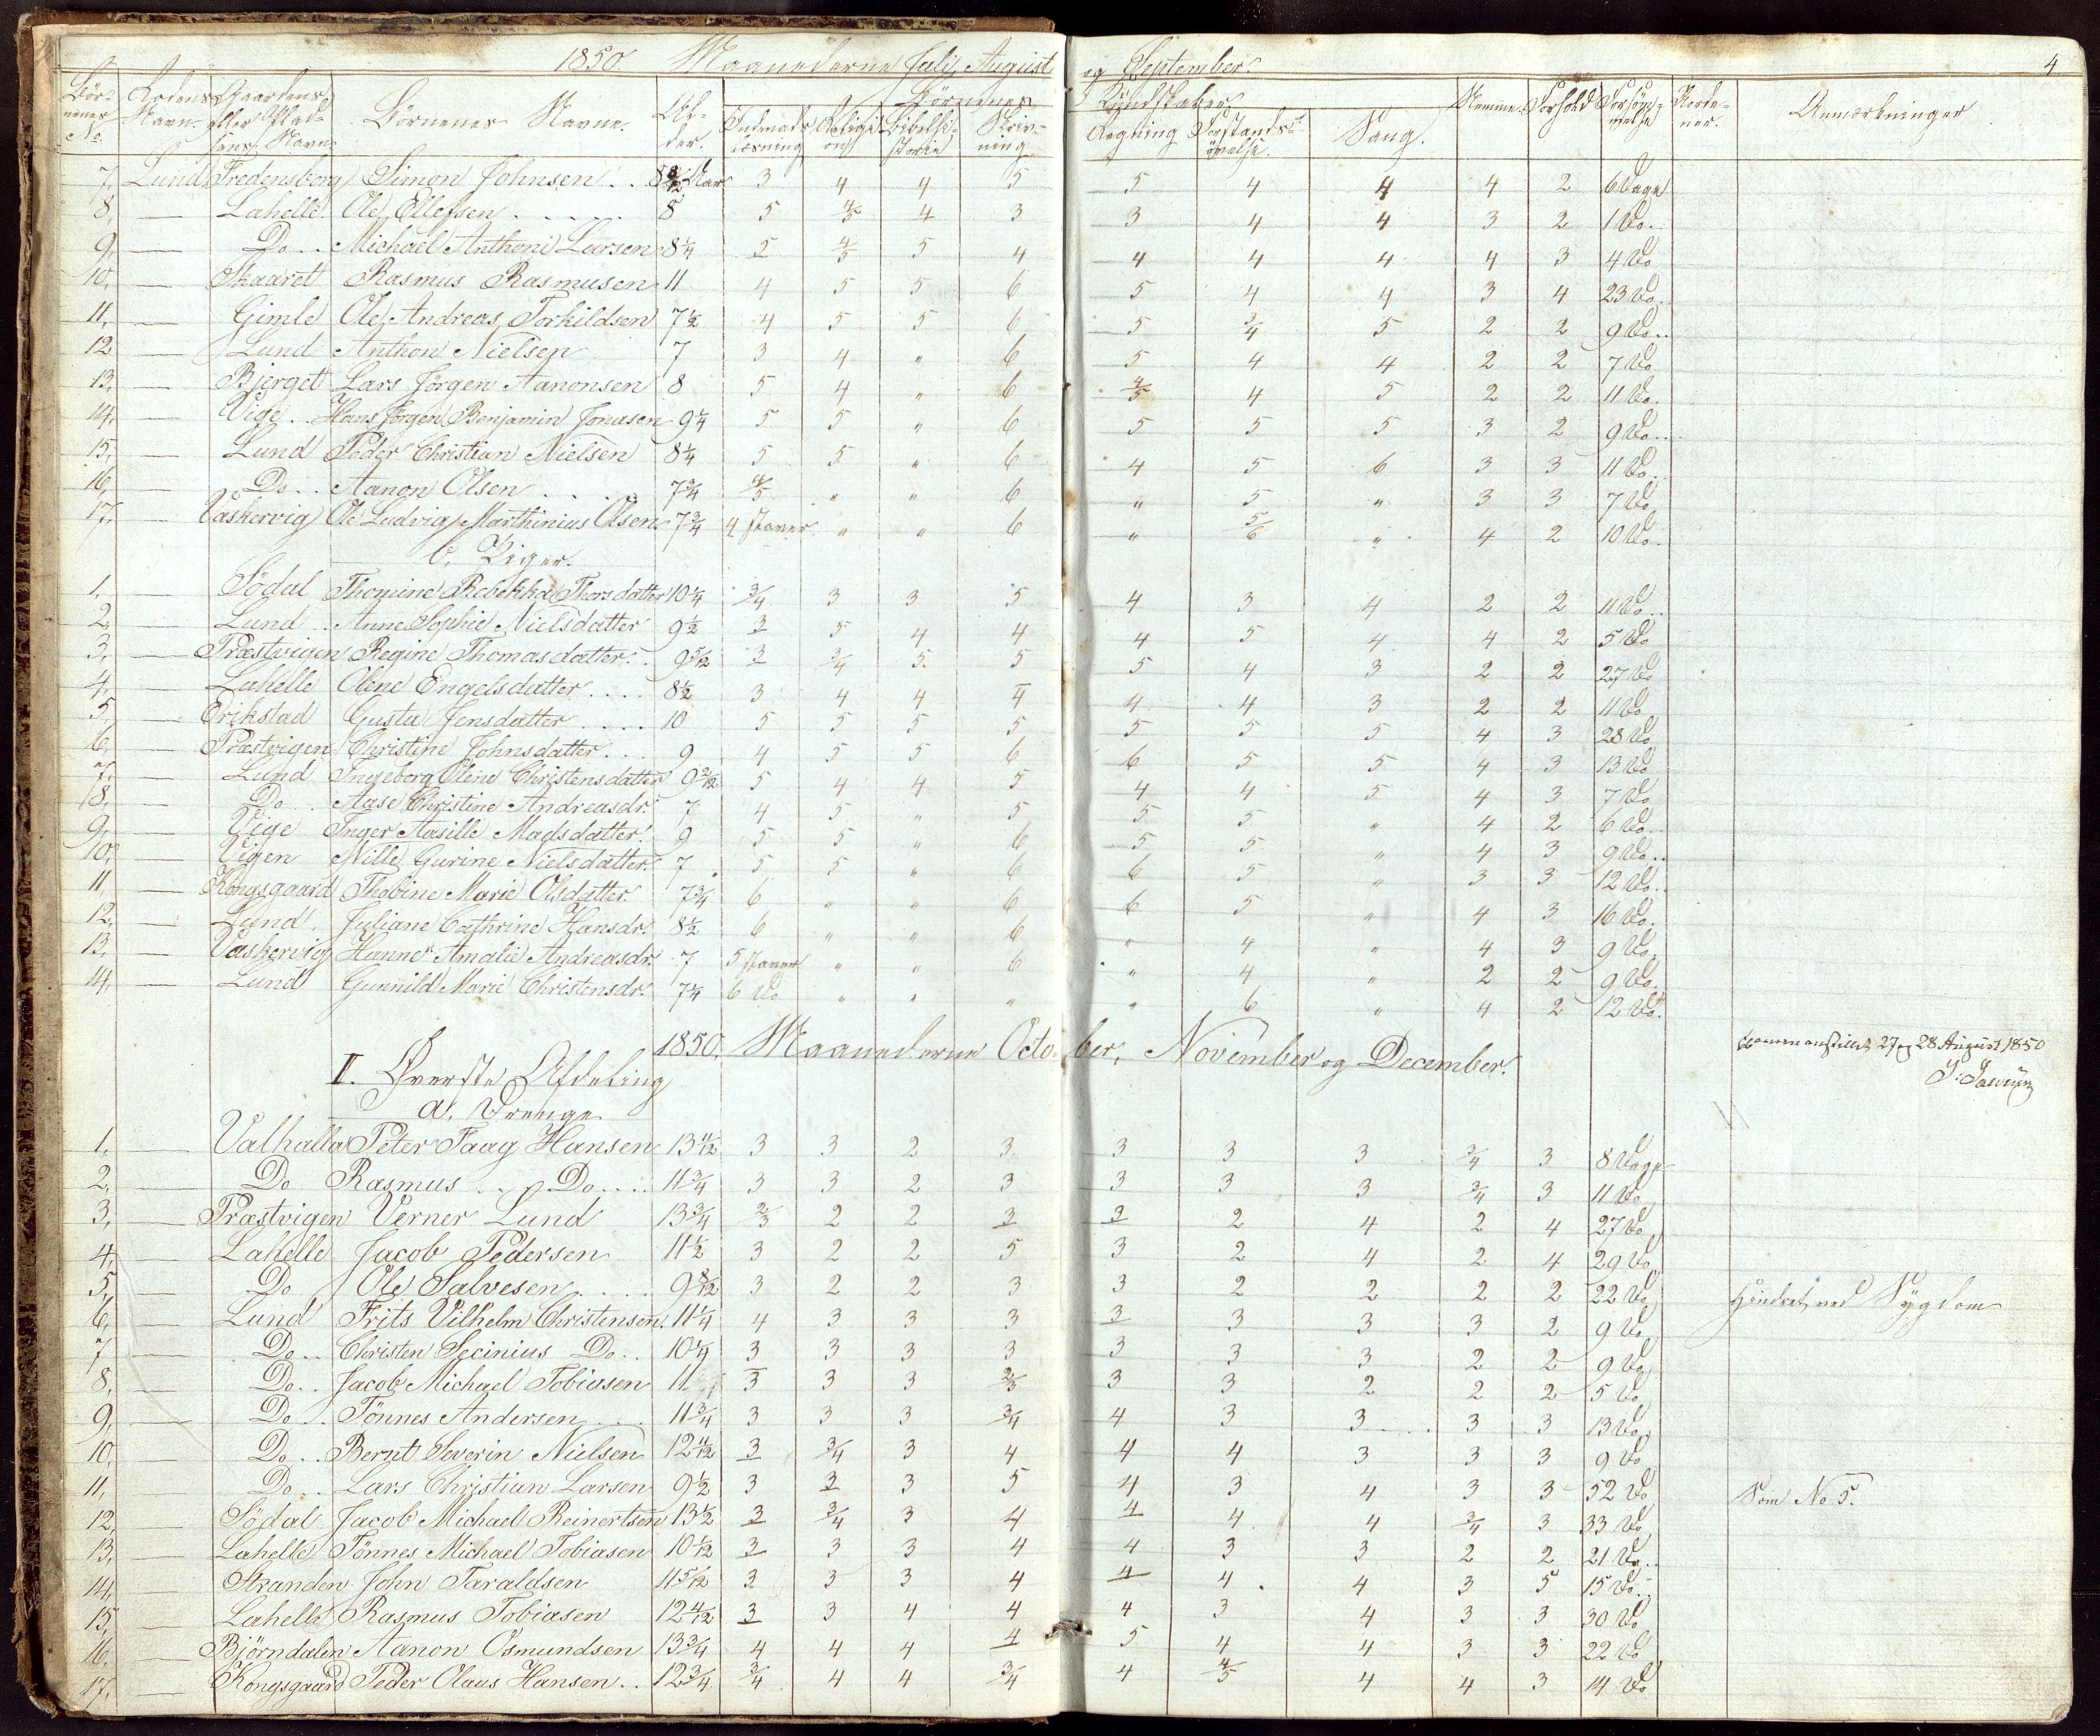 1850. Maanederne Juli, August og September. 4
Børnenes No. Rodens Navn. Gaardens eller Pladsens Navn. Børnenes Navne. Alder. Børnenes Kundskaber Nemme. Forhold Forsømmelse Anmærkninger
Indenadslæsning Religion Bibelhistorie Skrivning Regning Forstandsøvelse. Sang.
7. Lund Fredensborg Simon Johnsen . . Aar 3 4 4 5 5 4 4 4 2 6 Dage
8. — Lahelle Ole Ellefsen . . . . . 8 5 4/5 4 3 3 4 4 3 2 1 Do.
9. — Do . . Michael Anthoni Larsen 8 1/4 5 4/5 5 4 4 4 4 4 3 4 Do
10. — Skaaret Rasmus Rasmusen 11 4 5 5 6 5 4 4 3 4 23 Do
11. — Gimle Ole Andreas Torkildsen 7 1/2 4 5 5 6 5 3/4 5 2 2 9 Do . .
12 — Lund Anthon Nielsen 7 3 4 " 6 5 4 4 2 2 7 Do
13. — Bjerget Lars Jørgen Aanonsen 8 5 4 " 6 4/5 4 5 2 2 11 Do.
14. — Vige . . Hans Jørgen Benjamin Jonasen 9 1/4 5 5 " 6 5 5 5 3 2 9 Do . .
15. — Lund Peder Christian Nielsen 8 1/4 5 5 " 6 4 5 6 3 3 11 Do
16. — Do . . Aanon Olsen . . . . 7 3/4 4/5 " " 6 " 5 " 3 3 7 Do
17. — Vaskervig Ole Ludvig Marthinius Olsen 7 3/4 4 staver " " 6 " 5/6 " 4 2 10 Do.
b. Piger.
1. Sødal Thomine Rebekka Thorsdatter 10 1/4 3/4 3 3 5 4 3 4 2 2 11 Do . .
2. — Lund . . Anne Sophie Nielsdatter 9 1/2 3 5 4 4 4 5 4 4 2 5 Do
3. — Præstvigen Regine Thomasdatter . . 9 5/12 3 3/4 5 5 5 4 3 2 2 27 Do
4. — Lahelle Olene Engelsdatter . . . . 8 1/2 3 4 4 4 4 4 3 2 2 11 Do
5. — Erikstad Gusta Jensdatter . . . . 10 5 5 5 5 5 5 5 4 3 28 Do
6. — Præstvigen Christine Johnsdatter . . 9 4 5 5 6 6 5 5 4 3 13 Do
7. — Lund Ingeborg Olene Christensdatter 9 2/12 5 4 4 5 4 4 5 4 3 7 Do
8. — Do . . Aase Christine Andreasdr. 7 4 5 " 5 5 5 " 4 2 6 Do . .
9. — Vige Inger Aasille Madsdatter. 9 5 5 " 6 5 5 " 4 3 9 Do . .
10. — Vigen Nille Gurine Nielsdatter. 7 5 5 " 6 6 5 " 3 3 12 Do . .
11 — Kongsgaard Thobine Marie Olsdatter. 7 3/4 6 " " 6 6 5 " 4 3 16 Do.
12. — Lund. Juliane Cathrine Hansdr. 8 1/2 6 " " 6 " 4 " 4 3 9 Do.
13. — Vaskervig Hanne Amalie Andreasdr. 7 5 staver " " 6 " 4 " 2 2 9 Do.
14. — Lund Gunnild Marie Christensdr. 7 1/4 6 Do " " " " 6 " 4 2 12 Do.
1850. Maanederne October, November og December.
27 og 28 August 1850
II. Øverste Afdeling
a. Drenge
1. — Valhalla Peter Faag Hansen 13 11/12 3 3 2 3 3 3 3 3/4 3 8 Dage
2. — Do Rasmus . . Do . . . 11 3/4 3 3 2 3 3 3 3 3/4 3 11 Do
3. — Præstvigen Verner Lund 13 3/4 2/3 2 2 3 3 2 4 2 4 27 Do
4. — Lahelle Jacob Pedersen 11 1/2 3 2 2 5 3 2 4 2 4 29 Do
5. — Do Ole Salvesen . . . . 9 8/12 3 2 2 3 3 2 2 2 2 22 Do Hindret ved Sygdom
6. — Lund Frits Vilhelm Christensen. 11 1/4 4 3 3 3 3 3 3 3 2 9 Do
7 — Do . . Christen Secinius Do . . 10 1/4 3 3 3 3 3 3 3 2 2 9 Do
8. — Do . . Jacob Michael Tobiasen 11 3 3 3 2/3 3 3 2 2 2 5 Do
9. — Do . . Tønnes Andersen . . . 11 3/4 3 3 3 3/4 4 3 3 3 3 13 Do
10. — Do . . Bernt Severin Nielsen 12 11/12 3 3/4 3 4 4 4 3 3 3 9 Do
11. — Do . . Lars Christian Larsen 9 1/2 3 3 3 5 4 3 4 3 3 52 Do Som No 5.
12. — Sødal Jacob Michael Reinertsen 13 1/2 3 3/4 3 4 4 4 4 3/4 3 33 Do
13. — Lahelle Tønnes Michael Tobiasen 10 1/12 3 3 3 4 4 3 3 2 2 21 Do . .
14. — Stranden John Taraldsen 11 5/12 3 3 3 4 4 4 4 3 5 15 Do . .
15. — Lahelle Rasmus Tobiasen 12 4/12 3 3 4 4 4 3 4 3 3 30 Do
16. — Bjørndalen Aanon Osmundsen 13 3/4 4 4 4 4 5 4 4 3 3 22 Do
17. — Kongsgaard Peder Olaus Hansen . . 12 3/4 3/4 4 4 3/4 4 4/5 4 4 3 14 Do